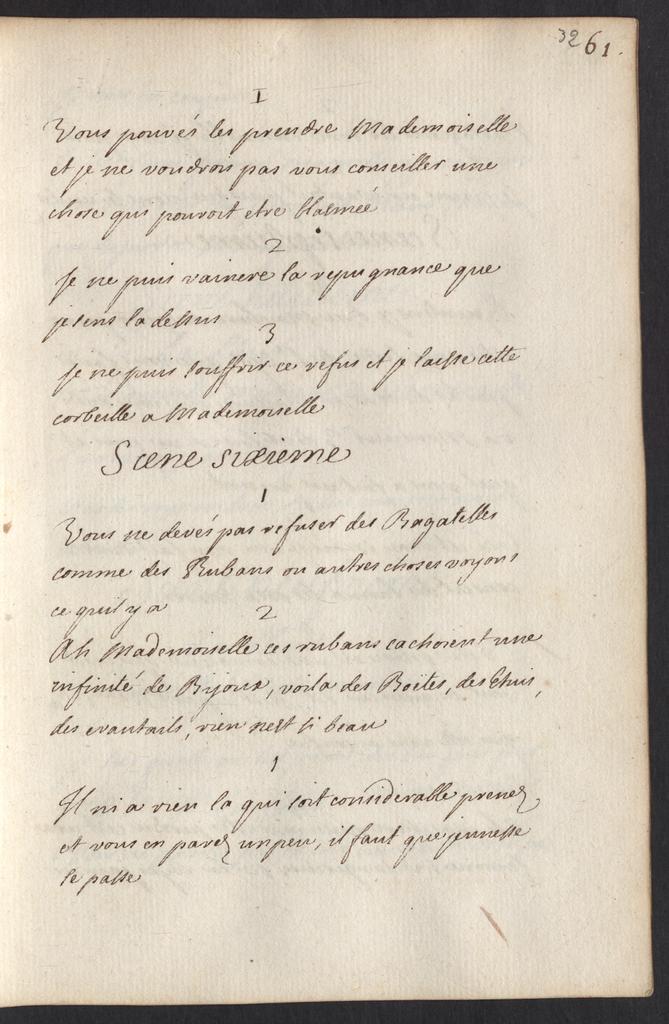 32 61.
I
Vous pouvés les prendre Mademoiselle
et je ne voudrois pas vous conseiller une
chose qui pourroit etre blasmeé
2
Je ne puis vaincre la repugnance que
je sens la dessus
3
je ne puis souffrir ce refus et je laisse cette
corbeille a Mademoiselle
Scene sixieme
1
Vous ne devés pas refuser des Bagatelles
comme des Rubans ou autres choses voyons
ce quil y a
2
Ah Mademoiselle ces rubans cachoient une
infinité de Bijoux, voila des Boites, des Etuis,
des evantails, rien nest si beau
1
Il ni a rien la qui soit considerable prenez
et vous en parez un peu, il faut que jeunesse
se passe